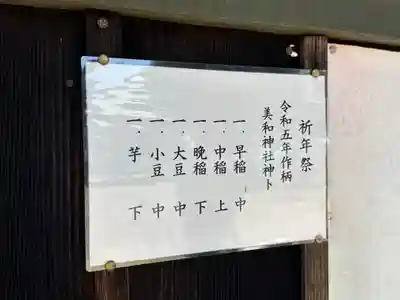 祈年祭
令和五年作柄
美和神社神卜
一.早稲 中
一.中稲 上
一.晩稲 下
一.大豆 中
一.小豆 中
一.芋 下